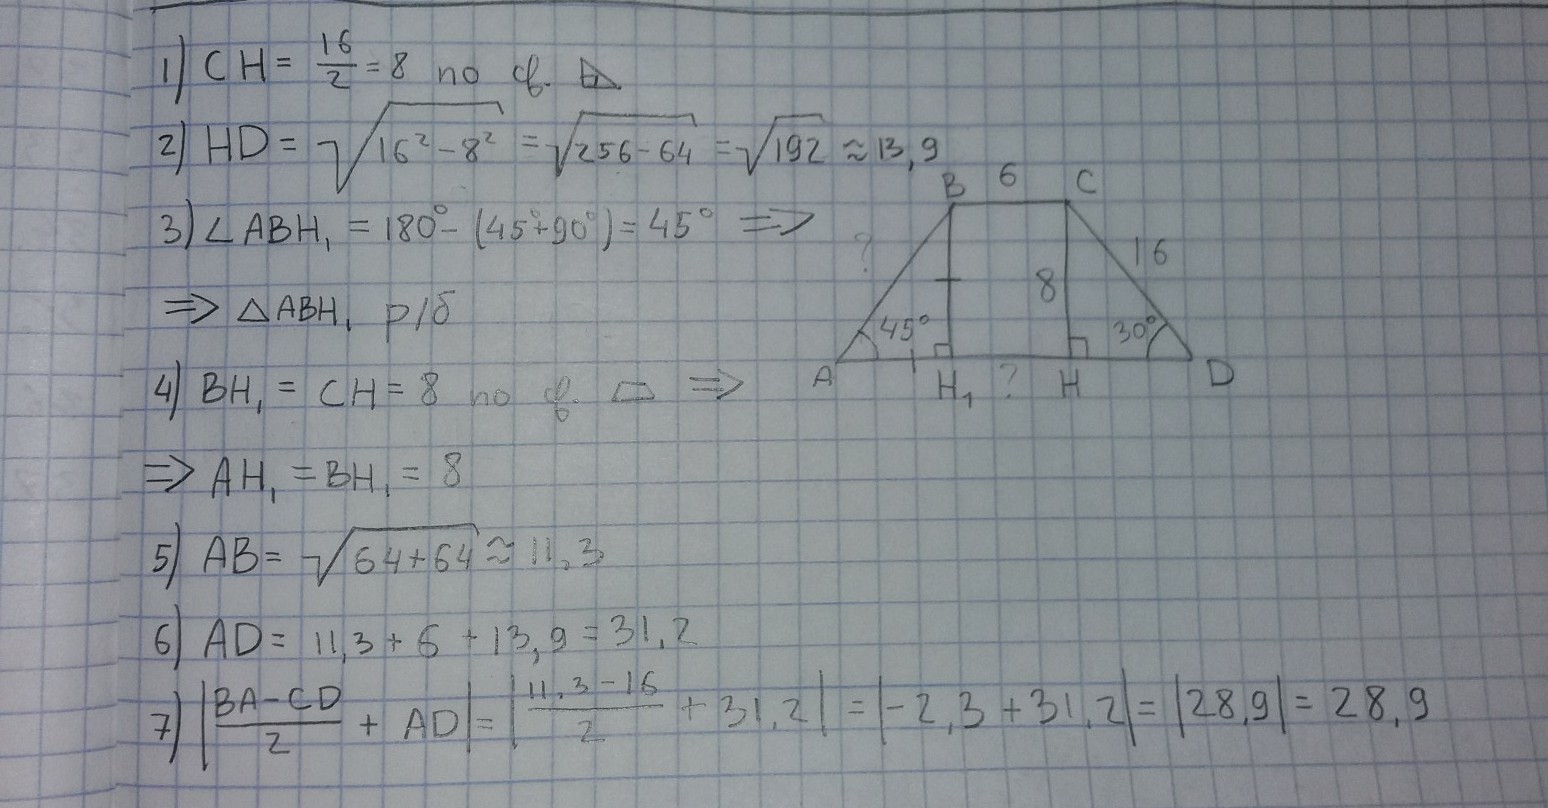 1) CH = 16/2 = 8 по св.
2) HD = √(16² - 8²) = √(256 - 64) = √192 ≈ 13,9
3) ∠ABH₁ = 180° - (45° + 90°) = 45° =>
=> △ABH₁ р/б
4) BH₁ = CH = 8 по св. =>
=> AH₁ = BH₁ = 8
5) AB = √(64 + 64) ≈ 11,3
6) AD = 11,3 + 6 + 13,9 = 31,2
7) |(BA - CD)/2 + AD| = |(11,3 - 16)/2 + 31,2| = |-2,3 + 31,2| = |28,9| = 28,9
B 6 C
? 16
8
45° 30°
A H₁ ? H D